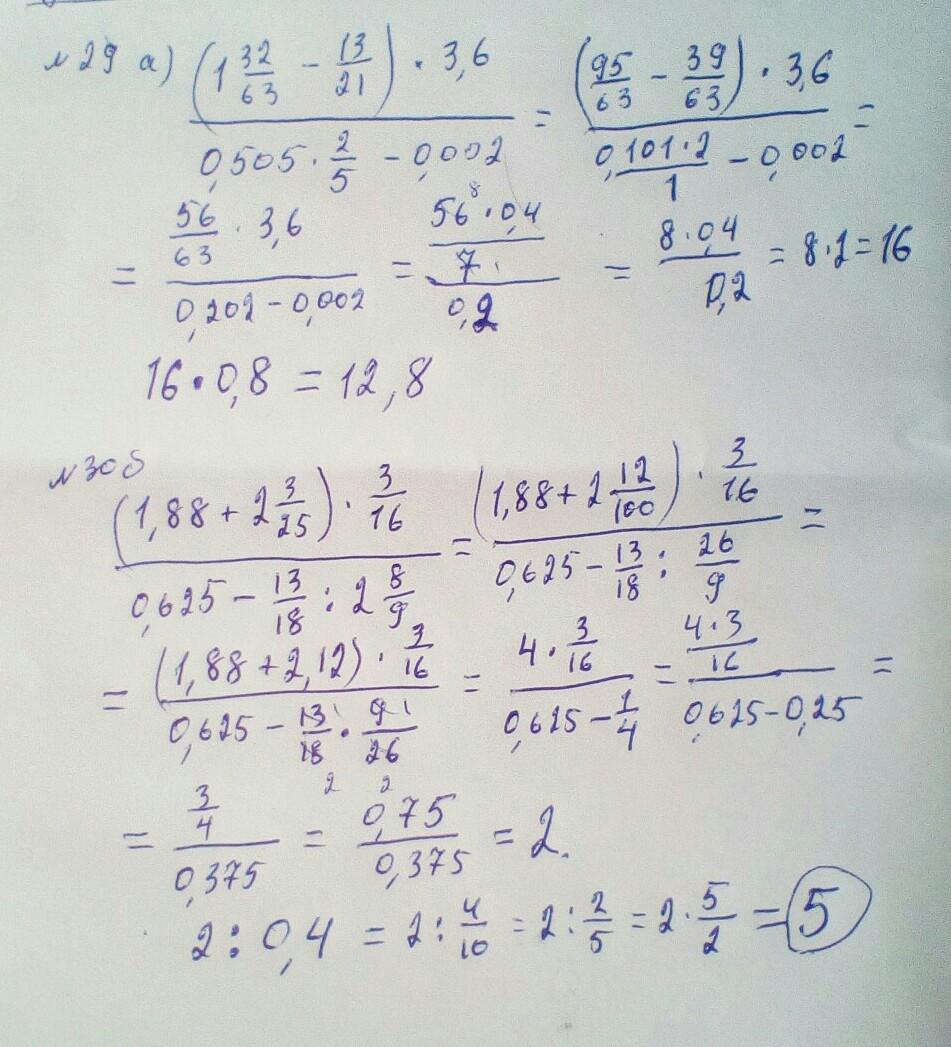 №29 а) ((1 32/63 - 13/21) · 3,6)/(0,505 · 2/5 - 0,002) = ((95/63 - 39/63) · 3,6)/((0,101·2)/1 - 0,002) =
= (56/63 · 3,6)/(0,202 - 0,002) = ((56⁸ · 0,4)/7)/0,2 = (8·0,4)/0,2 = 8·2=16
16·0,8 = 12,8
№30б
((1,88 + 2 3/25) · 3/16)/(0,625 - 13/18 : 2 8/9) = ((1,88 + 2 12/100) · 3/16)/(0,625 - 13/18 : 26/9) =
= ((1,88 + 2,12) · 3/16)/(0,625 - 13/18 · 9/26) = (4 · 3/16)/(0,625 - 1/4) = ((4·3)/16)/(0,625 - 0,25) =
= (3/4)/0,375 = 0,75/0,375 = 2.
2 : 0,4 = 2 : 4/10 = 2 : 2/5 = 2 · 5/2 = 5